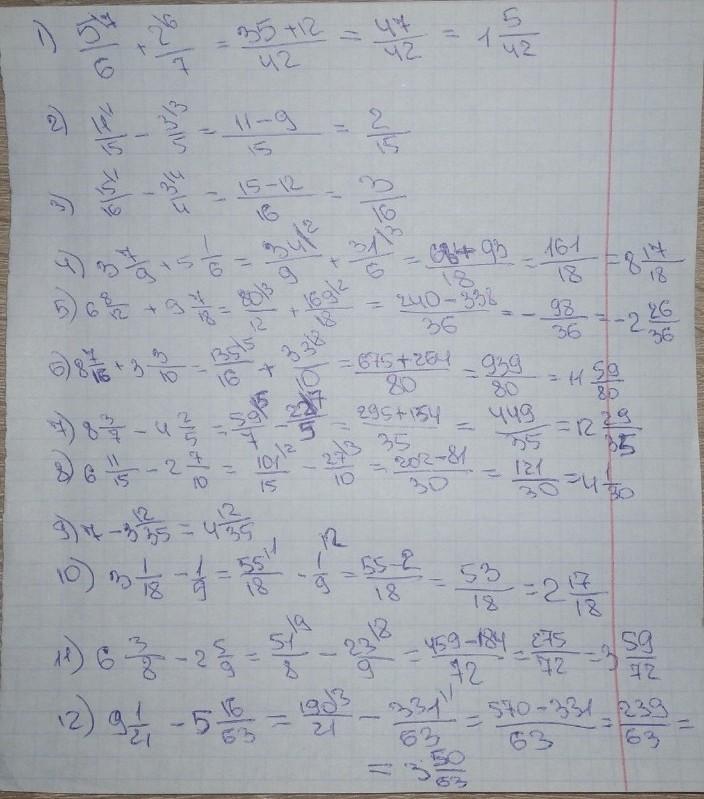 1) 5/6 \7 + 2/7 \6 = 35+12/42 = 47/42 = 1 5/42
2) 11/15 \1 - 3/5 \3 = 11-9/15 = 2/15
3) 15/16 \1 - 3/4 \4 = 15-12/16 = 3/16
4) 3 7/9 + 5 1/6 = 34/9 \2 + 31/6 \3 = 68+93/18 = 161/18 = 8 17/18
5) 6 8/12 + 9 7/18 = 80/12 \3 + 169/18 \2 = 240-338/36 = -98/36 = -2 26/36
6) 8 7/16 + 3 3/10 = 135/16 \5 + 33/10 \8 = 675+264/80 = 939/80 = 11 59/80
7) 8 3/7 - 4 2/5 = 59/7 \5 - 22/5 \7 = 295+154/35 = 449/35 = 12 29/35
8) 6 11/15 - 2 7/10 = 101/15 \2 - 27/10 \3 = 202-81/30 = 121/30 = 4 1/30
9) 7 - 3 12/35 = 4 12/35
10) 3 1/18 - 1/9 = 55/18 \1 - 1/9 \2 = 55-2/18 = 53/18 = 2 17/18
11) 6 3/8 - 2 5/9 = 51/8 \9 - 23/9 \8 = 459-184/72 = 275/72 = 3 59/72
12) 9 1/21 - 5 16/63 = 190/21 \3 - 331/63 \1 = 570-331/63 = 239/63 =
= 3 50/63